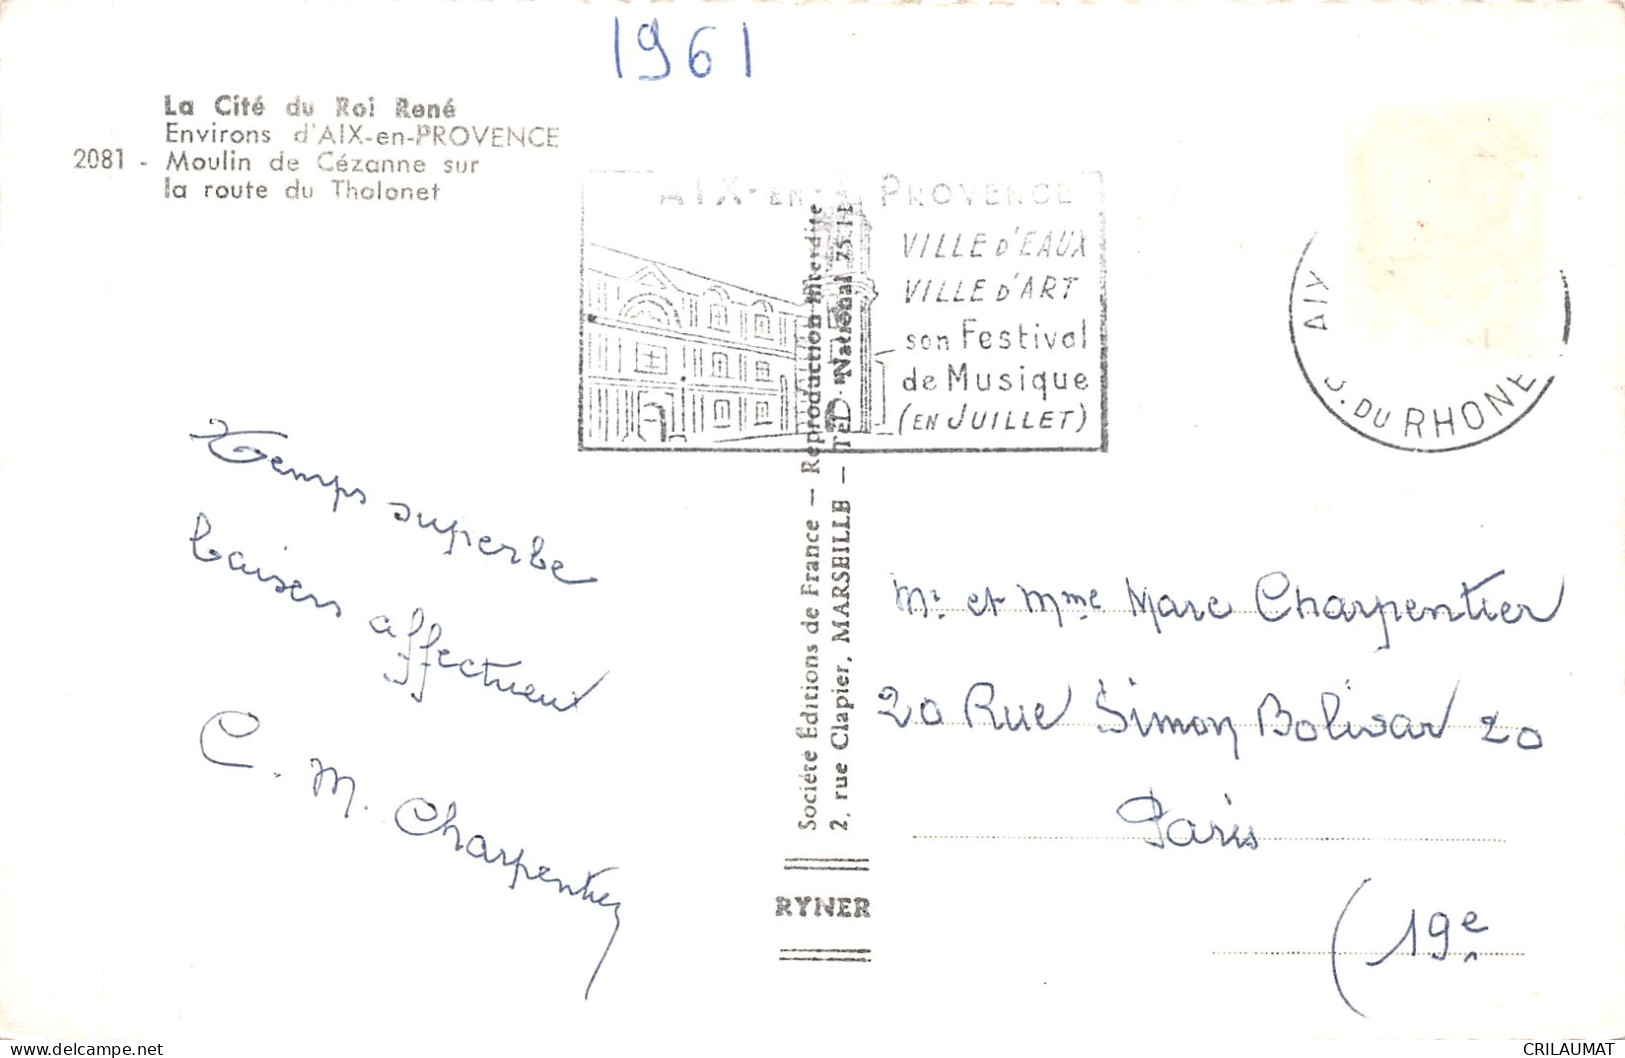 1961
La Cité du Roi René
Environs d'AIX-en-PROVENCE
2081 - Moulin de Cézanne sur
la route du Tholonet
AIX-EN- PROVENCE
VILLE D'EAUX
VILLE D'ART
son Festival
de Musique
(EN JUILLET)
AIX
B. DU RHONE
Temps superbe
baisers affectueux
C. M. Charpentier
Société Editions de France — Reproduction Interdite
2, rue Clapier, MARSEILLE — Tél. National 25.14
RYNER
Mr et Mme Marc Charpentier
20 Rue Simon Bolivar 20
Paris
(19e
delcampe.net
CRILAUMAT